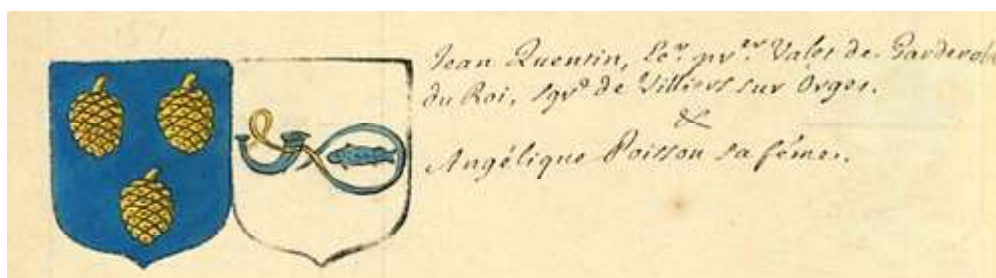 Jean Quentin, Ec.r pr.er Valet de Garderobe
du Roi, sgr.o de Villiers sur Orges.
&
Angélique Poisson sa féme.
157